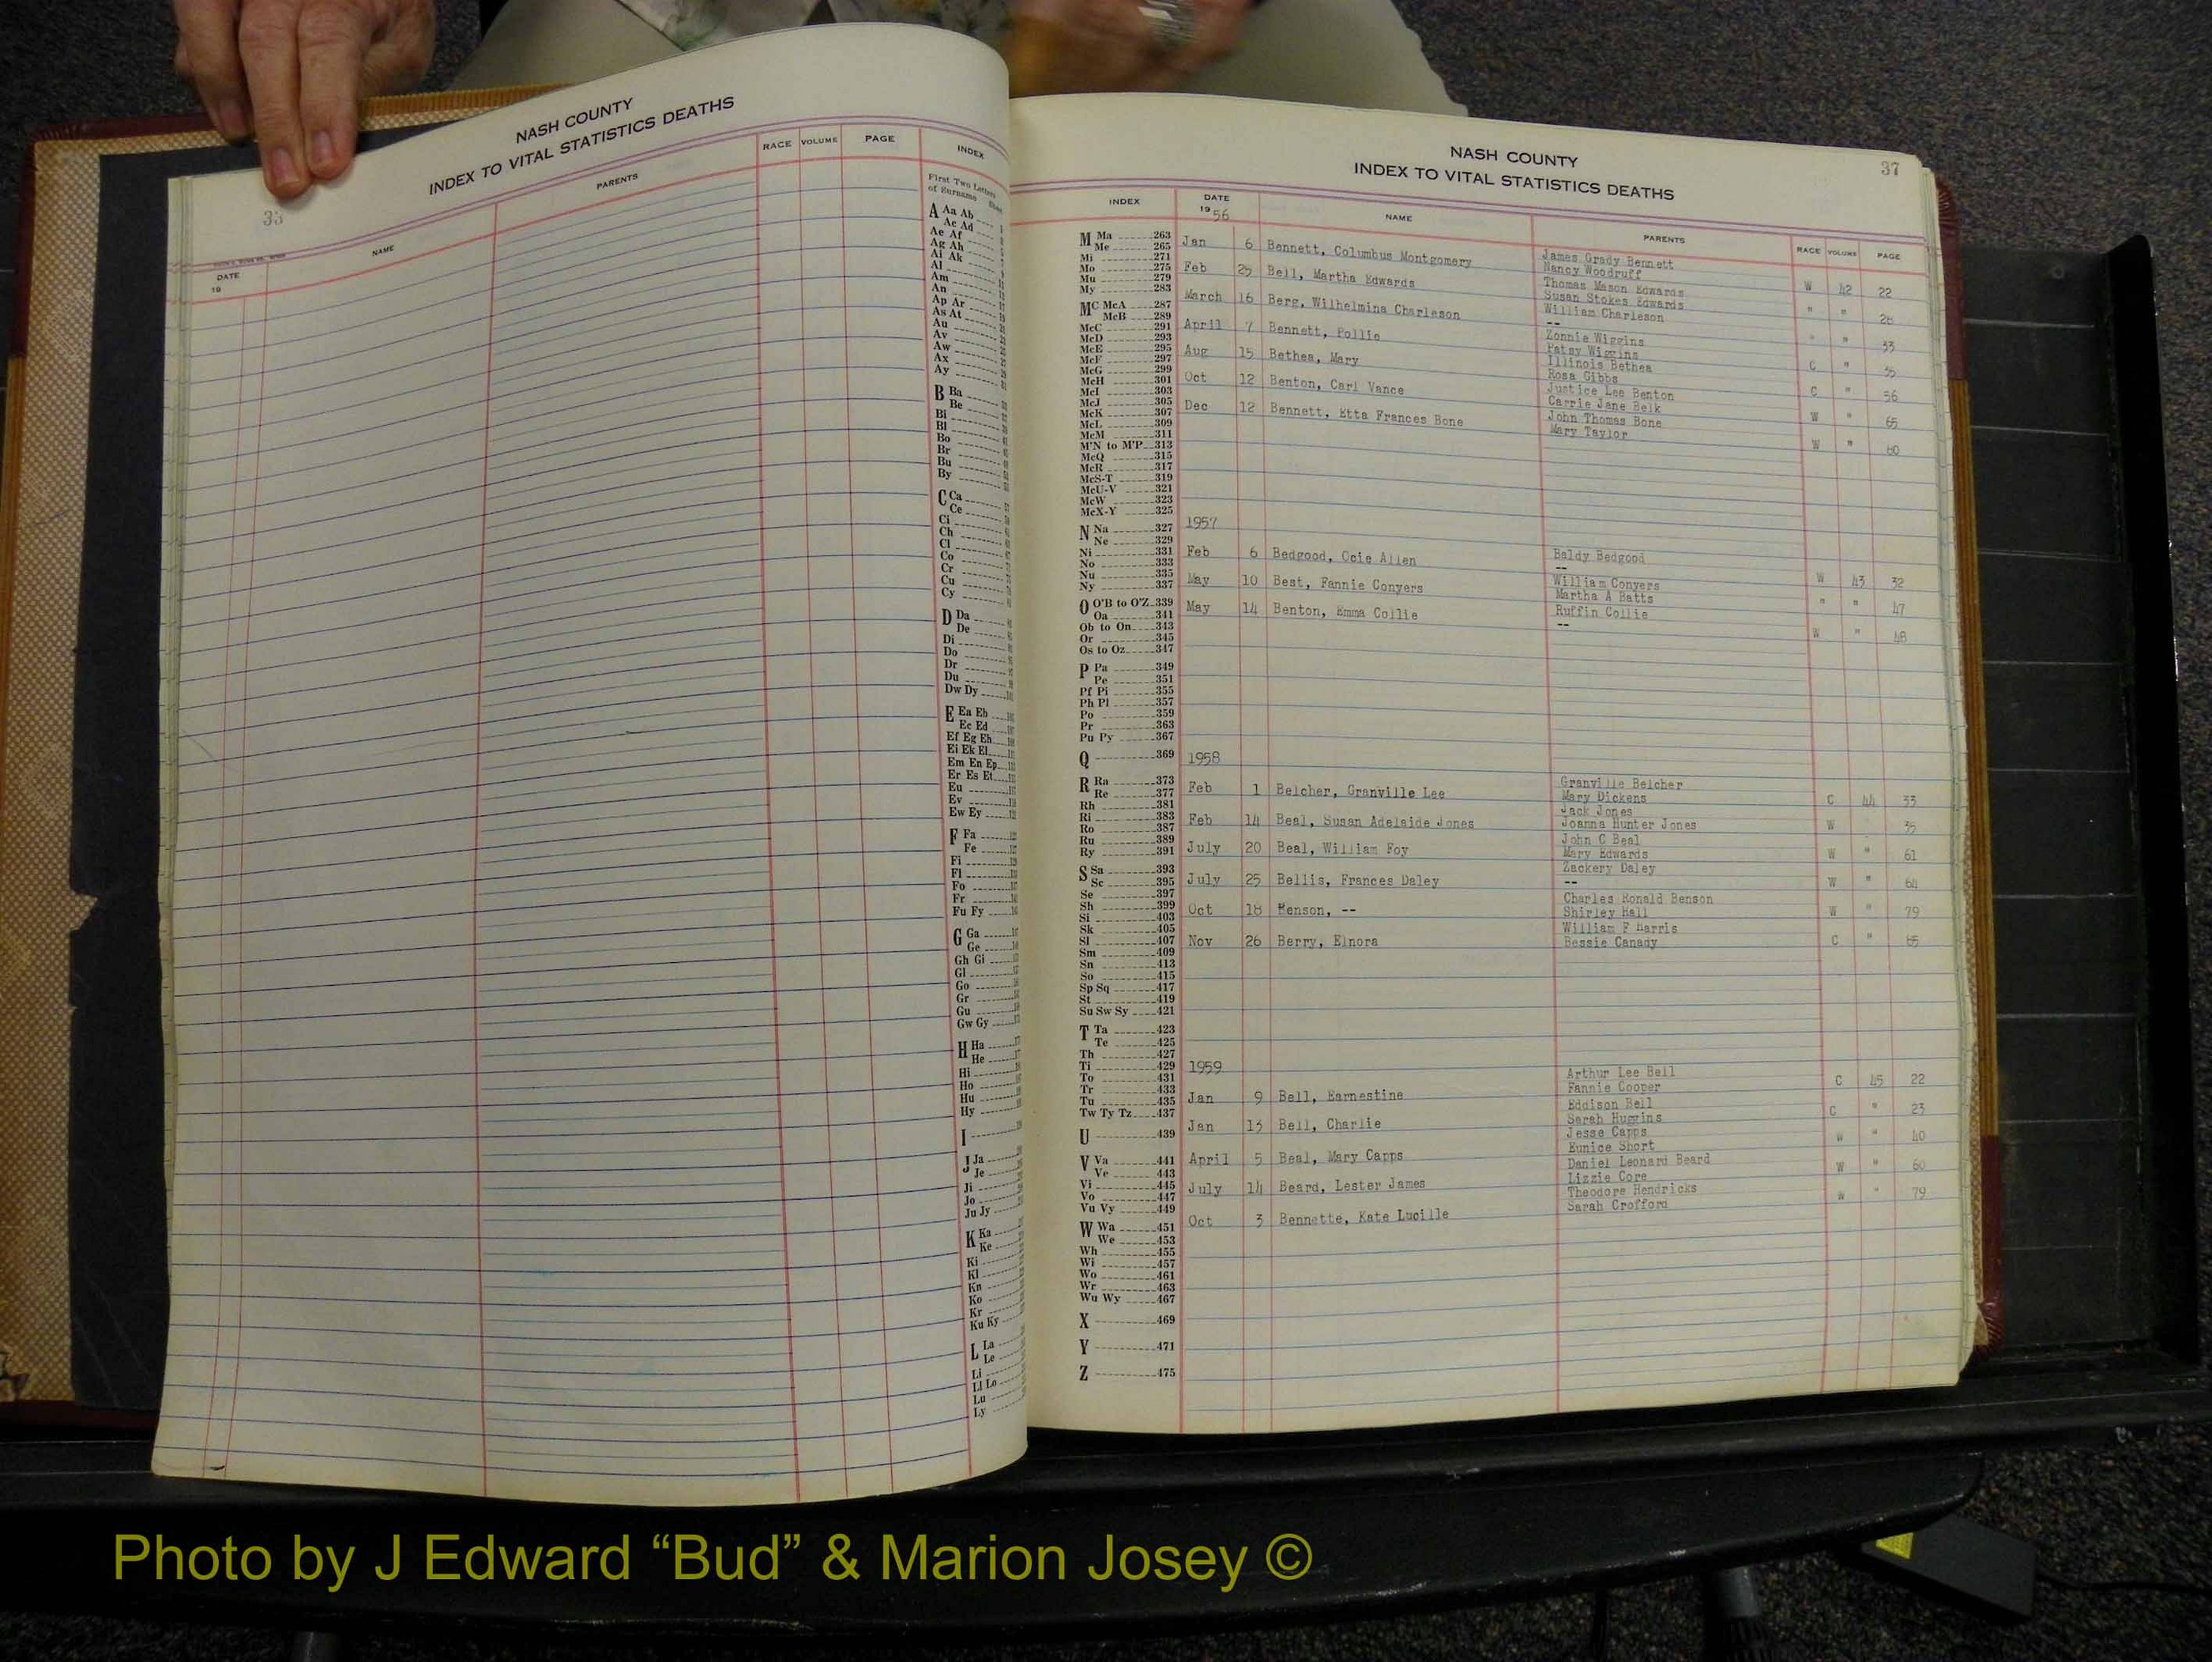 NASH COUNTY
INDEX TO VITAL STATISTICS DEATHS
DATE
19
NAME
PARENTS
RACE
VOLUME
PAGE
INDEX
First Two Letters
of Surname
A Aa Ab
Ac Ad
Ae Af
Ag Ah
Ai Ak
Al
Am
An
Ap Ar
As At
Au
Av
Aw
Ax
Ay
B Ba
Be
Bi
Bl
Bo
Br
Bu
By
C Ca
Ce
Ci
Ch
Cl
Co
Cr
Cu
Cy
D Da
De
Di
Do
Dr
Du
Dw Dy
E Ea Eb
Ec Ed
Ef Eg Eh
Ei Ek El
Em En Ep
Er Es Et
Eu
Ev
Ew Ey
F Fa
Fe
Fi
Fl
Fo
Fr
Fu Fy
G Ga
Ge
Gh Gi
Gl
Go
Gr
Gu
Gw Gy
H Ha
He
Hi
Ho
Hu
Hy
I
J Ja
Je
Ji
Jo
Ju Jy
K Ka
Ke
Ki
Kl
Kn
Ko
Kr
Ku Ky
L La
Le
Li
Ll Lo
Lu
Ly
NASH COUNTY
INDEX TO VITAL STATISTICS DEATHS
37
INDEX
DATE
19 56
NAME
PARENTS
RACE
VOLUME
PAGE
M Ma 263
Me 265
Mi 271
Mo 275
Mu 279
My 283
MC McA 287
McB 289
McC 291
McD 293
McE 295
McF 297
McG 299
McH 301
McI 303
McJ 305
McK 307
McL 309
McM 311
M'N to M'P 313
McQ 315
McR 317
McS-T 319
McU-V 321
McW 323
McX-Y 325
N Na 327
Ne 329
Ni 331
No 333
Nu 335
Ny 337
O O'B to O'Z 339
Oa 341
Ob to On 343
Or 345
Os to Oz 347
P Pa 349
Pe 351
Pf Pi 355
Ph Pl 357
Po 359
Pr 363
Pu Py 367
Q 369
R Ra 373
Re 377
Rh 381
Ri 383
Ro 387
Ru 389
Ry 391
S Sa 393
Sc 395
Se 397
Sh 399
Si 403
Sk 405
Sl 407
Sm 409
Sn 413
So 415
Sp Sq 417
St 419
Su Sw Sy 421
T Ta 423
Te 425
Th 427
Ti 429
To 431
Tr 433
Tu 435
Tw Ty Tz 437
U 439
V Va 441
Ve 443
Vi 445
Vo 447
Vu Vy 449
W Wa 451
We 453
Wh 455
Wi 457
Wo 461
Wr 463
Wu Wy 467
X 469
Y 471
Z 475
Jan 6 Bennett, Columbus Montgomery James Grady Bennett
Nancy Woodruff W 42 22
Feb 25 Bell, Martha Edwards Thomas Mason Edwards
Susan Stokes Edwards " " 28
March 16 Berg, Wilhelmina Charleson William Charleson
-- " " 33
April 7 Bennett, Pollie Zonnie Wiggins
Patsy Wiggins C " 35
Aug 15 Bethea, Mary Illinois Bethea
Rosa Gibbs C " 56
Oct 12 Benton, Carl Vance Justice Lee Benton
Carrie Jane Belk W " 65
Dec 12 Bennett, Etta Frances Bone John Thomas Bone
Mary Taylor W " 80
1957
Feb 6 Bedgood, Ocie Allen Baldy Bedgood
-- W 43 32
May 10 Best, Fannie Conyers William Conyers
Martha A Batts " " 47
May 14 Benton, Emma Collie Ruffin Collie
-- W " 48
1958
Feb 1 Belcher, Granville Lee Granville Belcher
Mary Dickens C 44 33
Feb 14 Beal, Susan Adelaide Jones Jack Jones
Joanna Hunter Jones W " 35
July 20 Beal, William Foy John C Beal
Mary Edwards W " 61
July 25 Bellis, Frances Daley Zackery Daley
-- W " 64
Oct 18 Benson, -- Charles Ronald Benson
Shirley Hall W " 79
Nov 26 Berry, Elnora William F Harris
Bessie Canady C " 85
1959
Jan 9 Bell, Earnestine Arthur Lee Bell
Fannie Cooper C 45 22
Jan 13 Bell, Charlie Eddison Bell
Sarah Huggins C " 23
April 5 Beal, Mary Capps Jesse Capps
Eunice Short W " 40
July 14 Beard, Lester James Daniel Leonard Beard
Lizzie Core W " 60
Oct 3 Bennette, Kate Lucille Theodore Hendricks
Sarah Crofford W " 79
Photo by J Edward “Bud” & Marion Josey ©